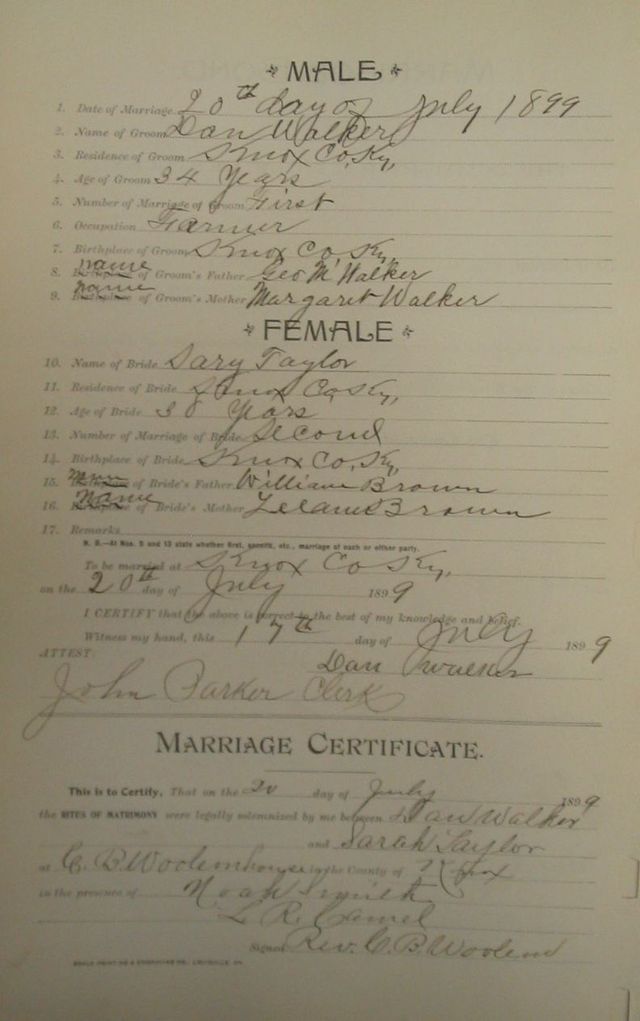 MALE
1. Date of Marriage 20th day of July 1899
2. Name of Groom Dan Walker
3. Residence of Groom Knox Co, Ky,
4. Age of Groom 34 Years
5. Number of Marriage of Groom First
6. Occupation Farmer
7. Birthplace of Groom Knox Co, Ky,
name
8. Birthplace of Groom's Father Geo M, Walker
name
9. Birthplace of Groom's Mother Margaret Walker
FEMALE
10. Name of Bride Sary Taylor
11. Residence of Bride Knox Co, Ky,
12. Age of Bride 30 Years
13. Number of Marriage of Bride Second
14. Birthplace of Bride Knox Co, Ky,
15. of Bride's Father William Brown
name
16. Birthplace of Bride's Mother Brown
17. Remarks
N. B.—At Nos. 5 and 13 state whether first, second, etc., marriage of each or either party.
To be married at Knox Co Ky,
on the 20th day of July 1899
I CERTIFY that the above is correct to the best of my knowledge and belief.
Witness my hand, this 17th day of July 1899
ATTEST: Dan Walker
John Parker Clerk
MARRIAGE CERTIFICATE.
This is to Certify, That on the 20 day of July 1899
the RITES OF MATRIMONY were legally solemnized by me between Dan Walker
and Sarah Taylor
at C. B. house in the County of Knox
in the presence of Noah Smith
L. R.
Signed Rev. C. B.